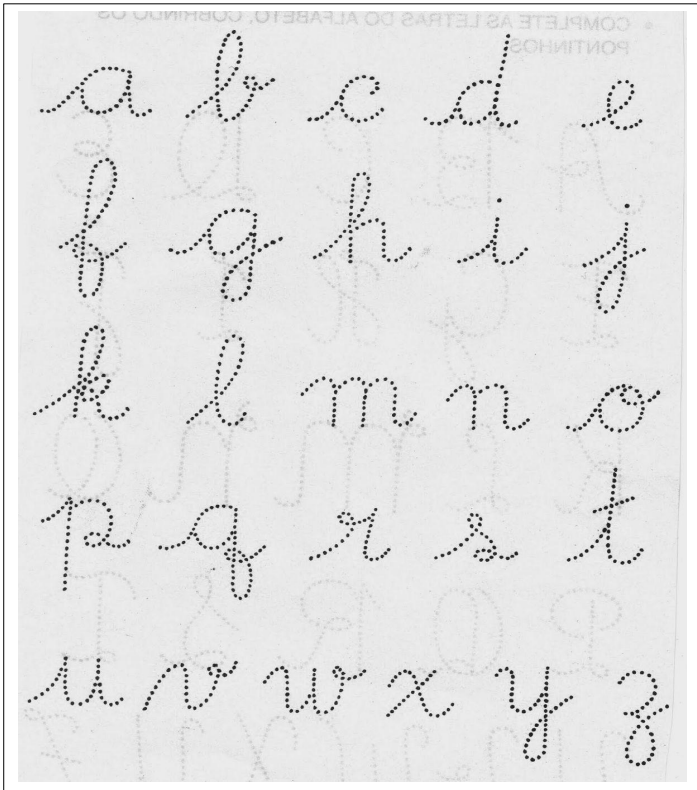 COMPLETE AS LETRAS DO ALFABETO, COBRINDO OS
PONTINHOS
a b c d e
f g h i j
k l m n o
p q r s t
u v w x y z